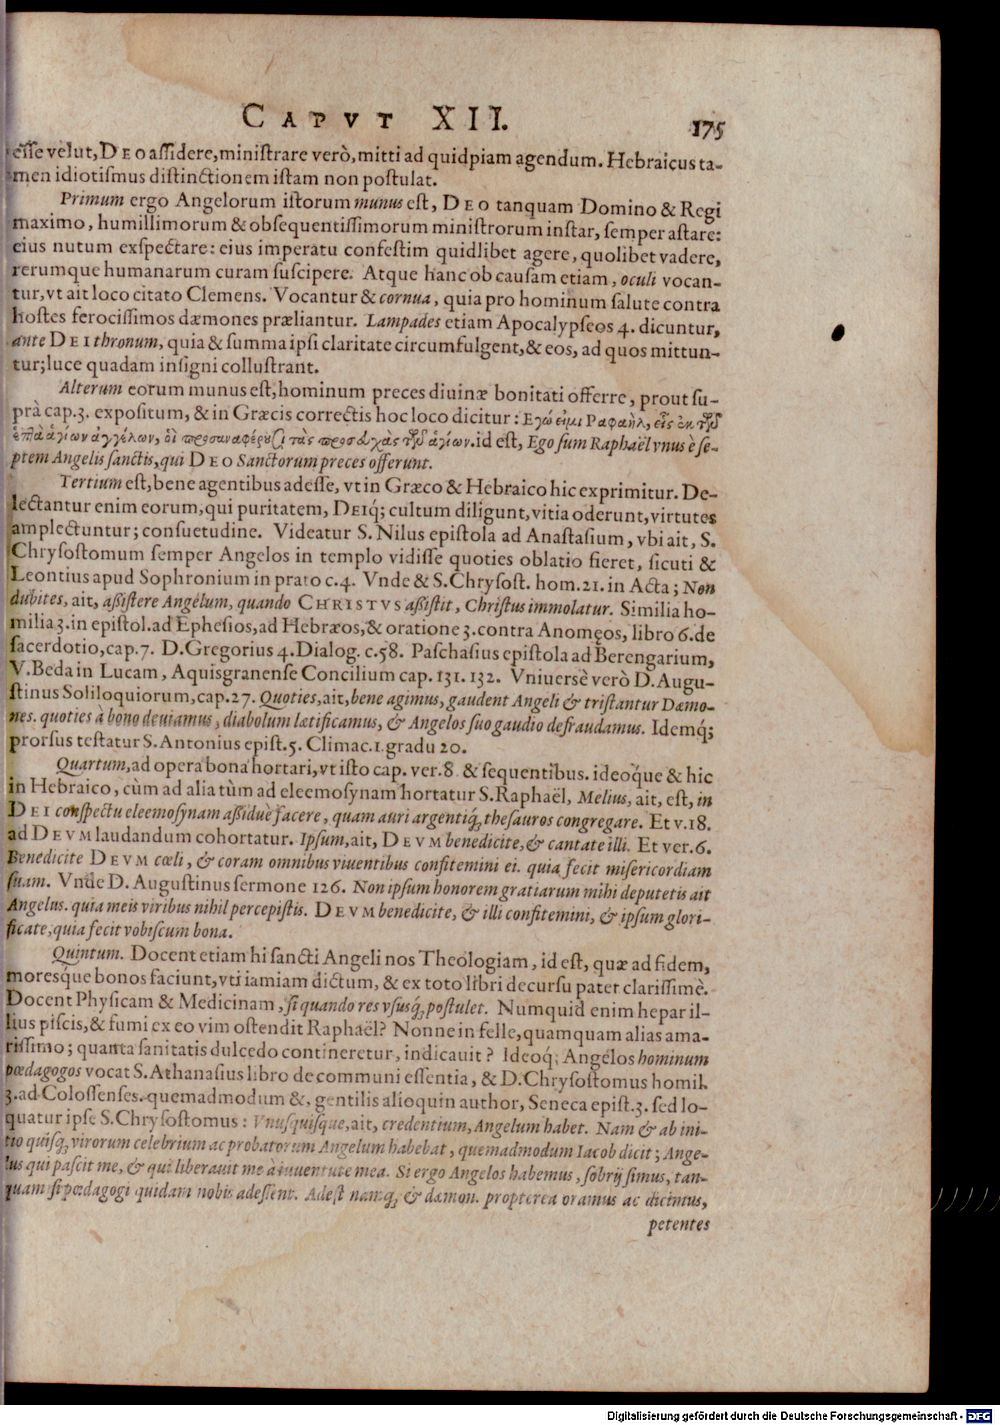 CAPVT XII. 175
esse velut, DEO assidere, ministrare verò, mitti ad quidpiam agendum. Hebraicus ta-
men idiotismus distinctionem istam non postulat.
Primum ergo Angelorum istorum munus est, DEO tanquam Domino & Regi
maximo, humillimorum & obsequentissimorum ministrorum instar, semper astare:
eius nutum exspectare: eius imperatu confestim quidlibet agere, quolibet vadere,
rerumque humanarum curam suscipere. Atque hanc ob causam etiam, oculi vocan-
tur, vt ait loco citato Clemens. Vocantur & cornua, quia pro hominum salute contra
hostes ferocissimos dæmones præliantur. Lampades etiam Apocalypseos 4. dicuntur,
ante DEI thronum, quia & summa ipsi claritate circumfulgent, & eos, ad quos mittun-
tur; luce quadam insigni collustrant.
Alterum eorum munus est, hominum preces diuinæ bonitati offerre, prout su-
prà cap. 3. expositum, & in Græcis correctis hoc loco dicitur: Εγώ εἰμι Ραφαὴλ, εἷς ἐκ τῶν
ἑπτὰ ἁγίων ἀγγέλων, οἳ προσαναφέρουσι τὰς προσευχὰς τῶν ἁγίων. id est, Ego sum Raphaël vnus è se-
ptem Angelis sanctis, qui DEO Sanctorum preces offerunt.
Tertium est, bene agentibus adesse, vt in Græco & Hebraico hic exprimitur. De-
lectantur enim eorum, qui puritatem, DEIq́; cultum diligunt, vitia oderunt, virtutes
amplectuntur; consuetudine. Videatur S. Nilus epistola ad Anastasium, vbi ait, S.
Chrysostomum semper Angelos in templo vidisse quoties oblatio fieret, sicuti &
Leontius apud Sophronium in prato c. 4. Vnde & S. Chrysost. hom. 21. in Acta; Non
dubites, ait, assistere Angelum, quando CHRISTVS assistit, Christus immolatur. Similia ho-
milia 3. in epistol. ad Ephesios, ad Hebræos, & oratione 3. contra Anomęos, libro 6. de
sacerdotio, cap. 7. D. Gregorius 4. Dialog. c. 58. Paschasius epistola ad Berengarium,
V. Beda in Lucam, Aquisgranense Concilium cap. 131. 132. Vniuersè verò D. Augu-
stinus Soliloquiorum, cap. 27. Quoties, ait, bene agimus, gaudent Angeli & tristantur Dæmo-
nes. quoties à bono deuiamus, diabolum lætificamus, & Angelos suo gaudio defraudamus. Idemq́;
prorsus testatur S. Antonius epist. 5. Climac. 1. gradu 20.
Quartum, ad opera bona hortari, vt isto cap. ver. 8. & sequentibus. ideoq́ue & hic
in Hebraico, cùm ad alia tùm ad eleemosynam hortatur S. Raphaël, Melius, ait, est, in
DEI conspectu eleemosynam assiduè facere, quam auri argentiq́; thesauros congregare. Et v. 18.
ad DEVM laudandum cohortatur. Ipsum, ait, DEVM benedicite, & cantate illi. Et ver. 6.
Benedicite DEVM cœli, & coram omnibus viuentibus confitemini ei. quia fecit misericordiam
suam. Vnde D. Augustinus sermone 126. Non ipsum honorem gratiarum mihi deputetis ait
Angelus. quia meis viribus nihil percepistis. DEVM benedicite, & illi confitemini, & ipsum glori-
ficate, quia fecit vobiscum bona.
Quintum. Docent etiam hi sancti Angeli nos Theologiam, id est, quæ ad fidem,
moresq́ue bonos faciunt, vti iamiam dictum, & ex toto libri decursu patet clarissimè.
Docent Physicam & Medicinam, si quando res vsusq́; postulet. Numquid enim hepar il-
lius piscis, & fumi ex eo vim ostendit Raphaël? Nonne in felle, quamquam alias ama-
rissimo; quanta sanitatis dulcedo contineretur, indicauit? Ideoq́; Angelos hominum
pœdagogos vocat S. Athanasius libro de communi essentia, & D. Chrysostomus homil.
3. ad Colossenses. quemadmodum &, gentilis alioquin author, Seneca epist. 3. sed lo-
quatur ipse S. Chrysostomus: Vnusquisque, ait, credentium, Angelum habet. Nam & ab ini-
tio quisq́; virorum celebrium ac probatorum Angelum habebat, quemadmodum Iacob dicit; Ange-
lus qui pascit me, & qui liberauit me à iuuentute mea. Si ergo Angelos habemus, sobrij simus, tan-
quam si pœdagogi quidam nobis adessent. Adest namq́; & dæmon. propterea oramus ac dicimus,
petentes
Digitalisierung gefördert durch die Deutsche Forschungsgemeinschaft - DFG